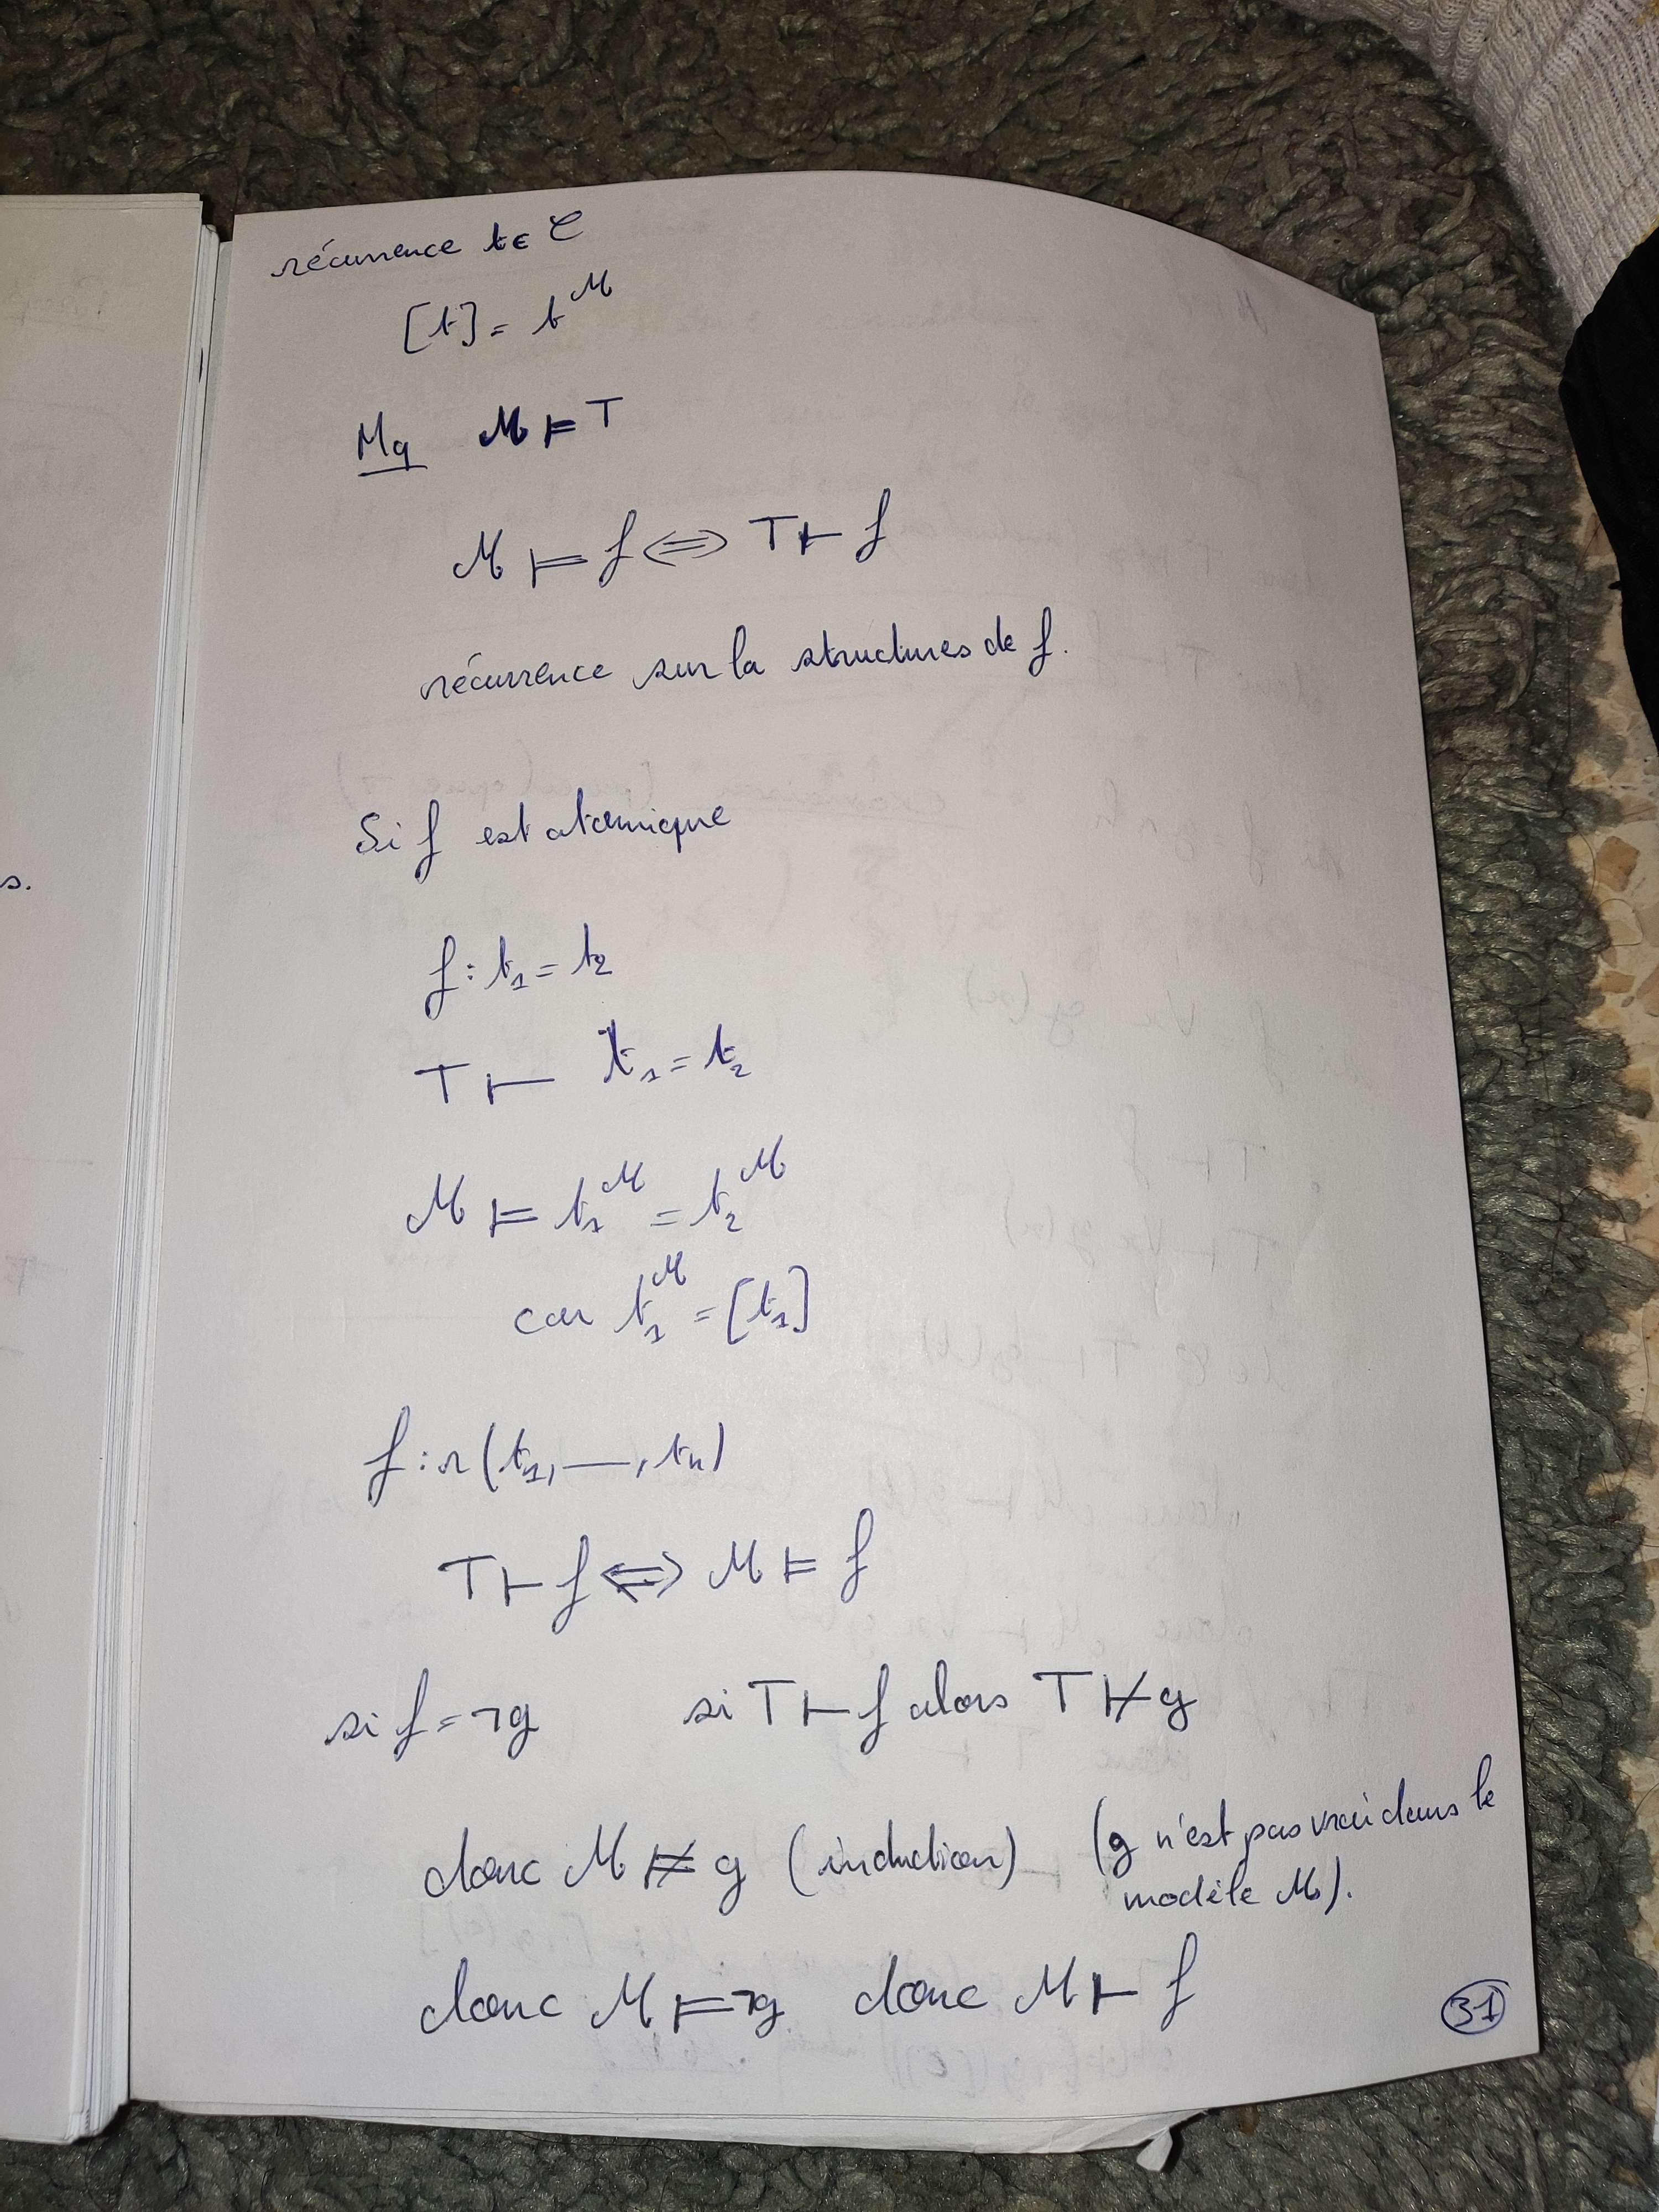 récurrence t ∈ 𝒞
[t] = t^ℳ
Mq ℳ ⊨ T
ℳ ⊨ f ⇔ T ⊢ f
récurrence sur la structures de f.
Si f est atomique
s.
f : t₁ = t₂
T ⊢ t₁ = t₂
ℳ ⊨ t₁^ℳ = t₂^ℳ
car t₁^ℳ = [t₁]
f : r(t₁, —, tₙ)
T ⊢ f ⇔ ℳ ⊨ f
si f = ¬g si T ⊢ f alors T ⊬ g
donc ℳ ⊭ g (induction) (g n'est pas vrai dans le
modèle ℳ).
donc ℳ ⊨ ¬g donc ℳ ⊢ f
31